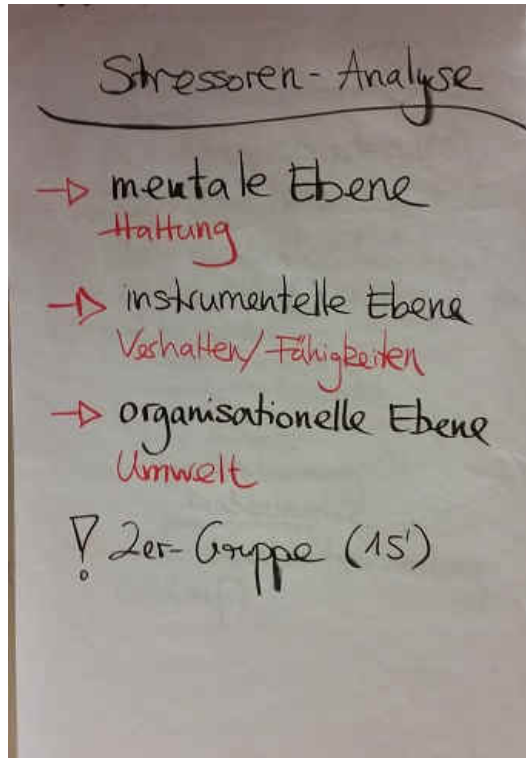 Stressoren-Analyse
→ mentale Ebene
Haltung
→ instrumentelle Ebene
Verhalten/Fähigkeiten
→ organisationelle Ebene
Umwelt
! 2er-Gruppe (15')